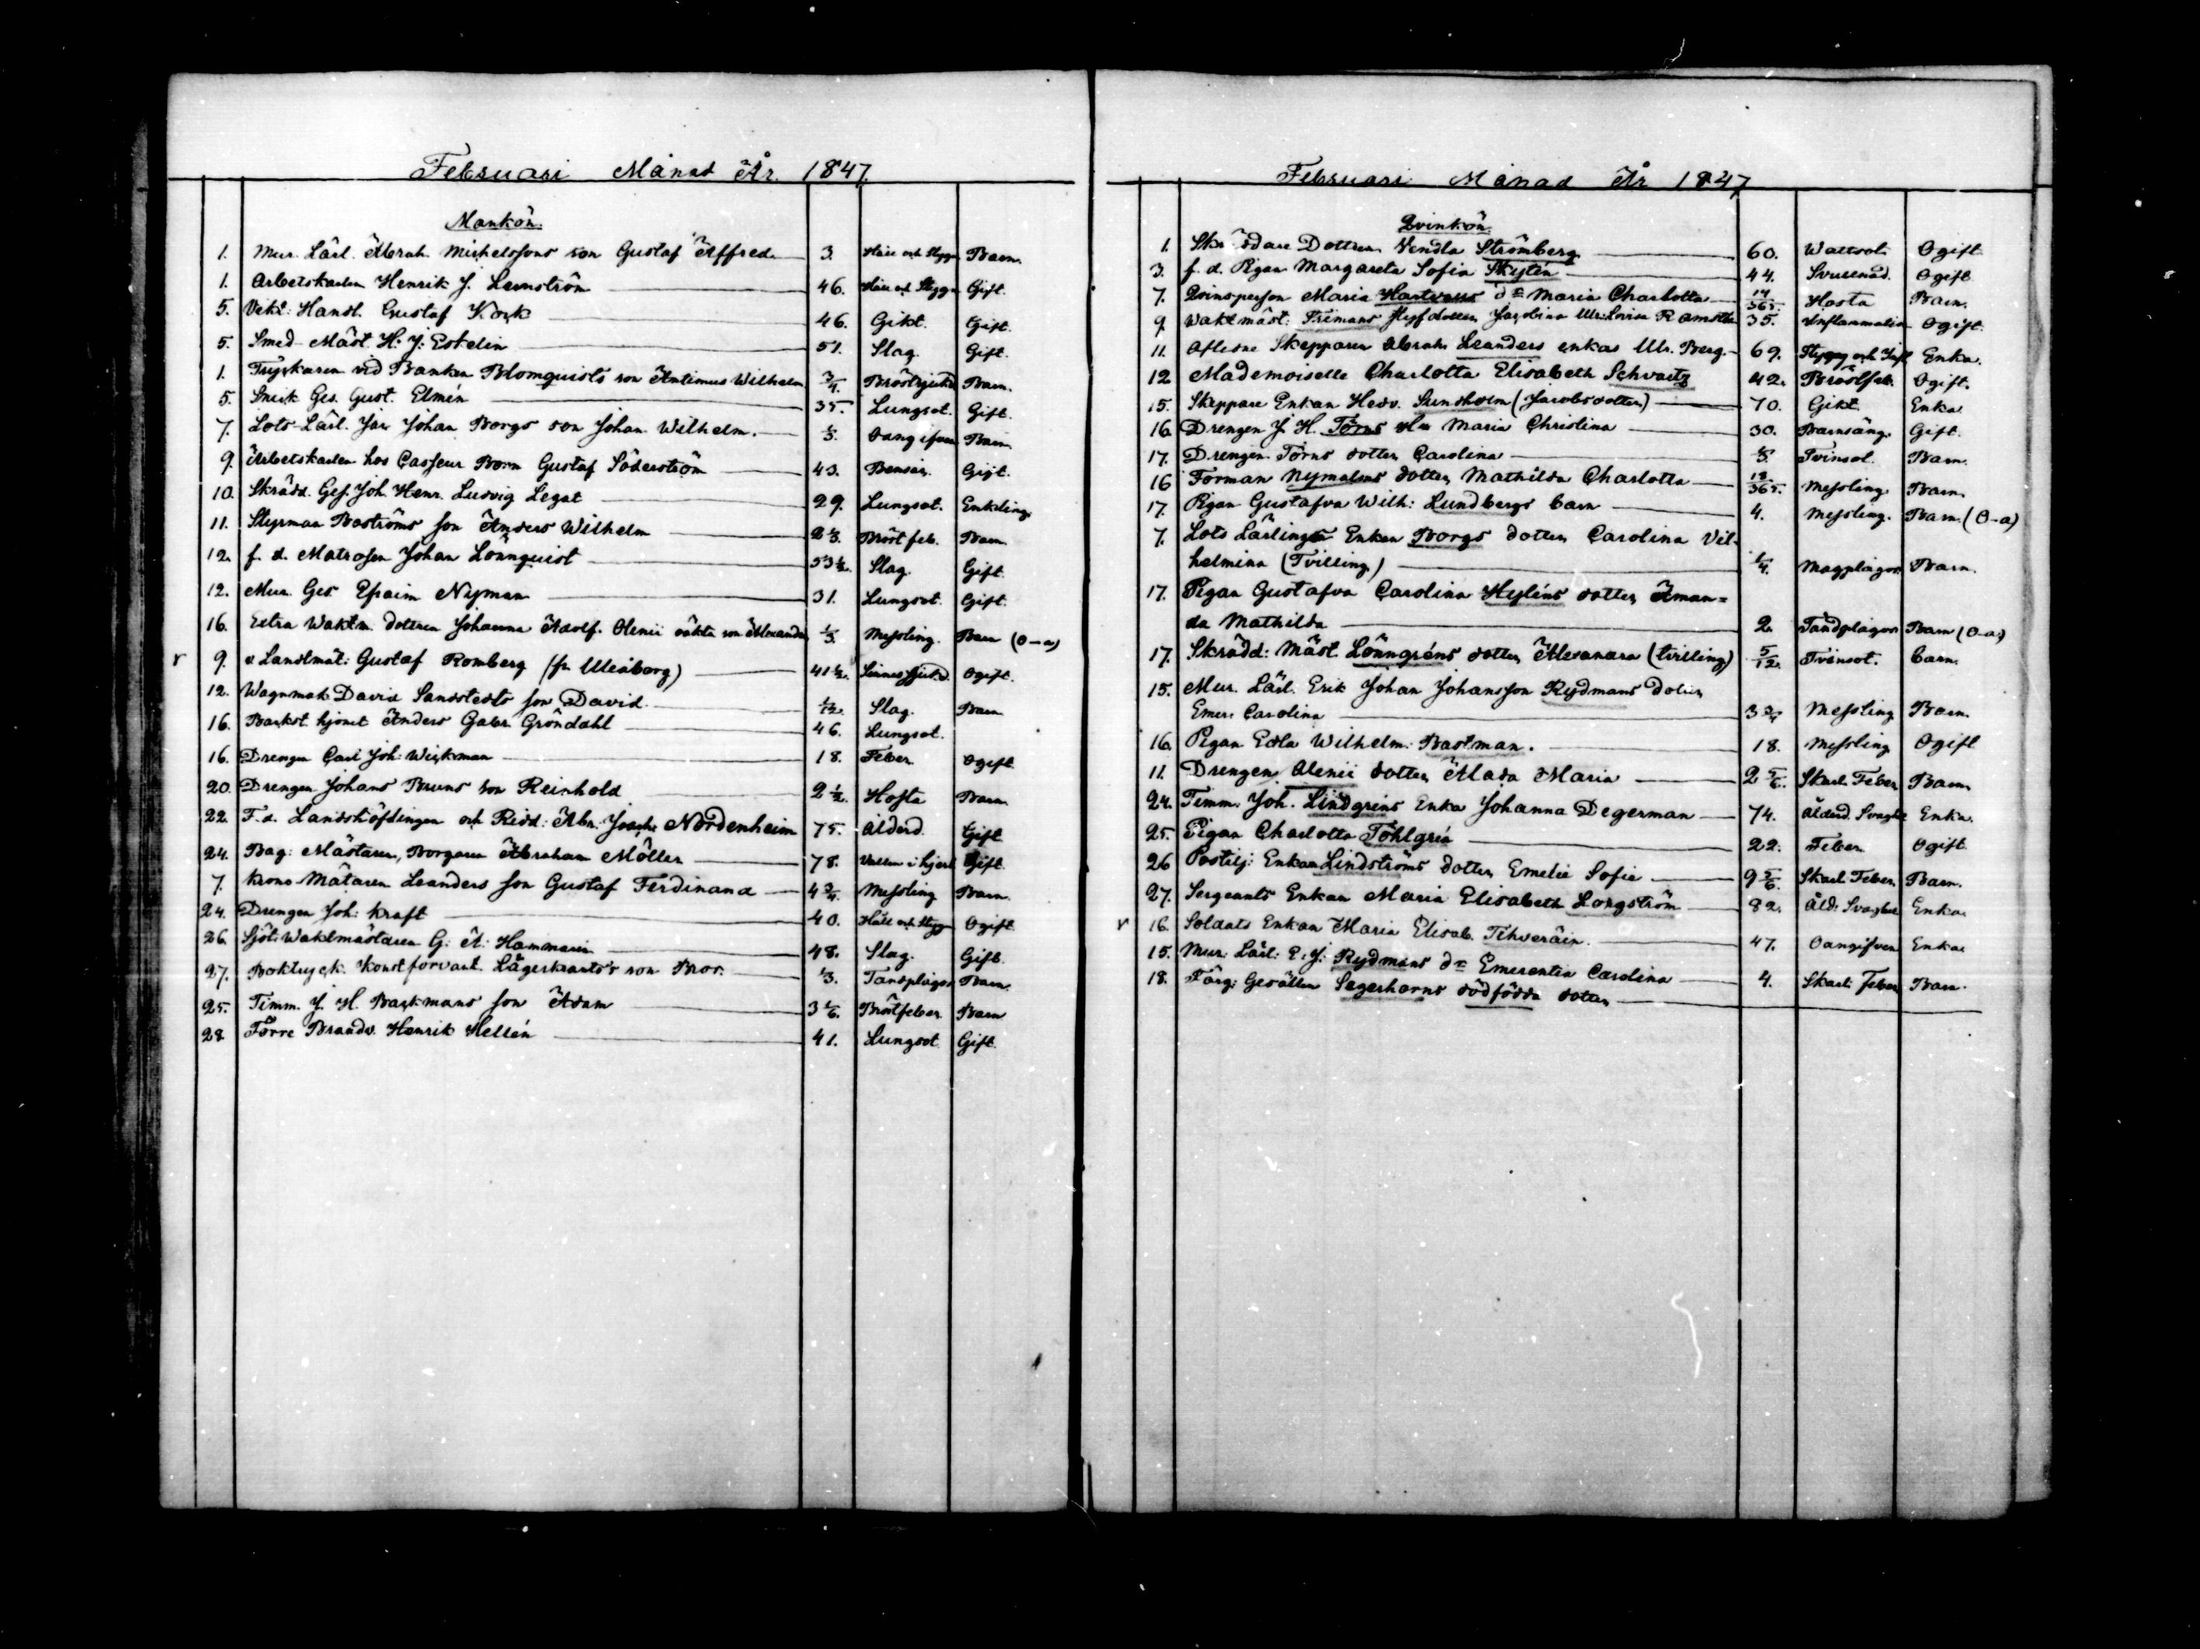 Februari Månad År. 1847.
Mankön.
1. Mur. Lärl. Abrah. Michelssons son Gustaf Alffred. 3. Håll och Stygn Barn.
1. Arbetskarlen Henrik J. Lemström 46. Håll och Stygn Gift.
5. Vikt. Handl. Gustaf 46. Gikt. Gift.
5. Smed-Mäst. H. J. Estelin 51. Slag. Gift.
1. Tryckaren vid Banken Blomquists son Antimus Wilhelm 3/4 Bröstsjukd Barn.
5. Snick Ges. Gust. Elmén 35. Lungsot. Gift.
7. Lots-Lärl. Johan Borgs son Johan Wilhelm. 1/3. Oangifven Barn
9. Arbetskarlen hos Casseur Born Gustaf Söderström 43. Gift.
10. Skrädd. Ges. Joh. Henr. Ludvig Legat 29. Lungsot. Enkling.
11. Styrman Boströms son Anders Wilhelm Bröst feb. Barn.
12. f. d. Matrosen Johan Lönnquist 53 1/2. Slag. Gift.
12. Mur. Ges Efraim Nyman 31. Lungsot. Gift.
16. Extra Waktm. dottren Johanna Adolf. Olenii oäkta son Alexander 1/3. Messling. Barn (O-a)
r 9. v. Landtmät: Gustaf Romberg (fr. Uleåborg) 41 1/2. Ogift.
12. Wagnmak David Sandstedts son David. 1/12. Slag. Barn
16. Anders Gabr. Gröndahl 46. Lungsot.
16. Drengen Carl Joh: Wickman 18. Feber Ogift.
20. Drengen Johans Bruns son Reinhold 2 1/2. Hosta Barn.
22. F. d. Landshöfdingen och Ridd: Abr. Joach: Nordenheim 75. Ålderd. Gift.
24. Bag: Mästaren, Borgaren Abraham Möller 78. Vatten i hjert Gift.
7. Krono-Mätaren Leanders son Gustaf Ferdinand 4 3/4. Messling Barn.
24. Drengen Joh: Kraft 40. Håll och Stygn Ogift
26. Sjöt: Waktmästaren G: A: Hammarin 48. Slag. Gift.
27. Boktryck. Konstförvant. Lägerkrants's son 1/3. Tandplågor Barn.
25. Timm. J. H. Backmans son Adam 3 1/6. Bröstfeber Barn
28. Förre Brandv. Henrik Hellén 41. Lungsot. Gift.
Februari Månad År 1847
Qvinkön
1. Skräddare Dottren Vendla Strömberg 60. Wattsot. Ogift.
3. f. d. Pigan Margareta Sofia Skytén 44. Ogift
7. Qvinsperson Maria Hartvalls dr Maria Charlotta 14/365. Hosta Barn.
9. Waktmäst: Frimans styfdotter Jacobina Ulr: Lovisa 35. Inflammation Ogift.
11. Aflidne Skepparen Abrah. Leanders enka Ulr. Berg. 69. Stygn och Infl. Enka.
12 Mademoiselle Charlotta Elisabeth Schvartz 42. Bröstfeb. Ogift.
15. Skeppare Enkan Hedv. Sundholm (Jacobsdotter) 70. Gikt. Enka
16. Drengen J. H. Törns Hu Maria Christina 30. Barnsäng. Gift.
17. Drengen Törns dotter Carolina Tvinsot. Barn.
16 Forman Nymalms dotter Mathilda Charlotta 12/365. Messling. Barn.
17. Pigan Gustafva Wilh: Lundbergs barn 4. Messling. Barn. (O-a)
7. Lots Lärlings Enkan Borgs dotter Carolina Vil-
helmina (Tvilling) 1/4. Magplågor Barn.
17. Pigan Gustafva Carolina Hyléns dotter Aman=
da Mathilda 2. Tandplågor Barn (O-a)
17. Skrädd: Mäst. Lönngréns dotter Alexandra (tvilling) 5/12. Tvinsot. barn.
15. Mur. Lärl. Erik Johan Johansson Rydmans dotter
Emer. Carolina 3 3/4 Messling Barn.
16. Pigan Edla Wilhelm: Bastman. 18. Messling Ogift
11. Drengen Olenii dotter Alada Maria 2 5/6. Skarl. Feber Barn.
24. Timm. Joh. Lindgrens Enka Johanna Degerman 74. Ålderd. Svaghet Enka.
25. Pigan Charlotta Töhlgrén 22. Feber Ogift
26 Postilj: Enkan Lindströms dotter Emelie Sofie 9 5/6. Skarl. Feber Barn.
27. Sergeants Enkan Maria Elisabeth Longström 82. Åld. Svaghet Enka
r 16. Soldats Enkan Maria Elisab. Tihveräin. 47. Oangifven Enka
15. Mur. Lärl: E. J. Rydmans dr Emerentia Carolina 4. Skarl. Feber Barn.
18. Färg: Gesällen Segerhorns dödfödda dotter